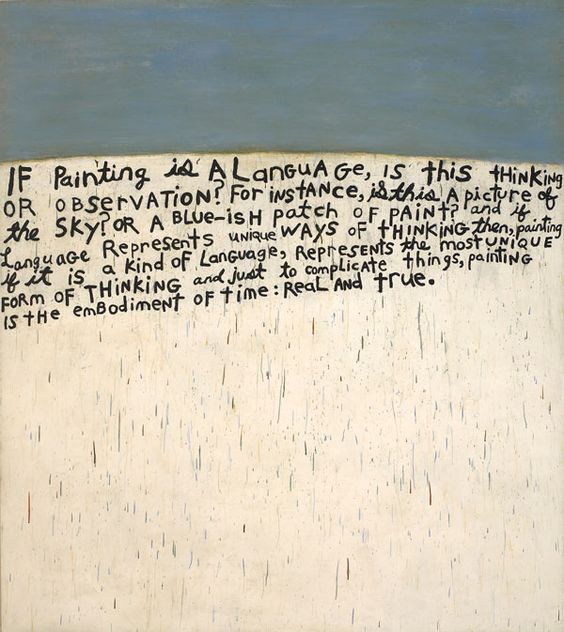 IF Painting is A LanguAGe, is this tHinKing
OR OBSERVATION? FOR iNSTANCE, is this A picture of
the SKY? OR A BLUE-ISH PATCH OF PAINT? and if
Language Represents uNiQUE WAYS OF tHINKING then, painting
if it is a Kind of Language, REPRESENTS the most UNIQUE
FORM OF THINKING and just to complicate things, painting
is the emBodiment of time: ReaL AND true.